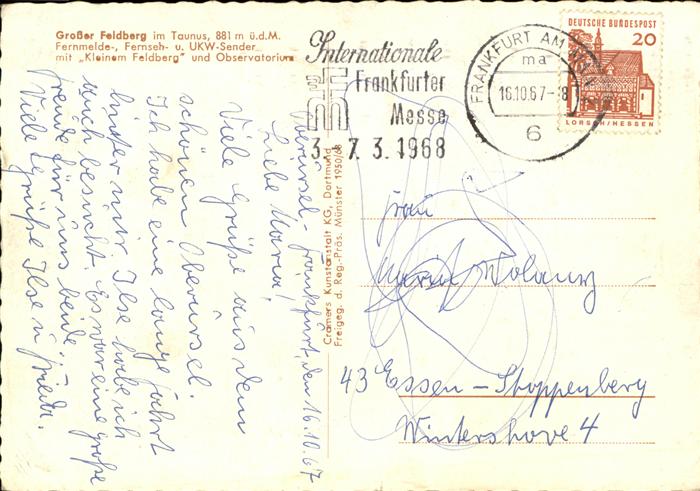 Großer Feldberg im Taunus, 881 m ü.d.M.
Fernmelde-, Fernseh- u. UKW-Sender
mit „Kleinem Feldberg" und Observatorium
Internationale
Frankfurter
Messe
3.-7.3.1968
FRANKFURT AM MAIN
ma
16.10.67-8
6
DEUTSCHE BUNDESPOST
20
LORSCH/HESSEN
Oberursel-Frankfurt, den 16.10.67
Liebe Maria!
Viele Grüße aus dem
schönen Oberursel.
Ich habe eine lange Fahrt
hinter mir. Ilse habe ich
auch besucht. Es war eine große
Freude für uns beide.
Viele Grüße Ilse u. Frieda.
Cramers Kunstanstalt KG, Dortmund
Freigeg. d. Reg.-Präs. Münster 1950/68
Frau
Maria
43 Essen-Stoppenberg
Wintershove 4